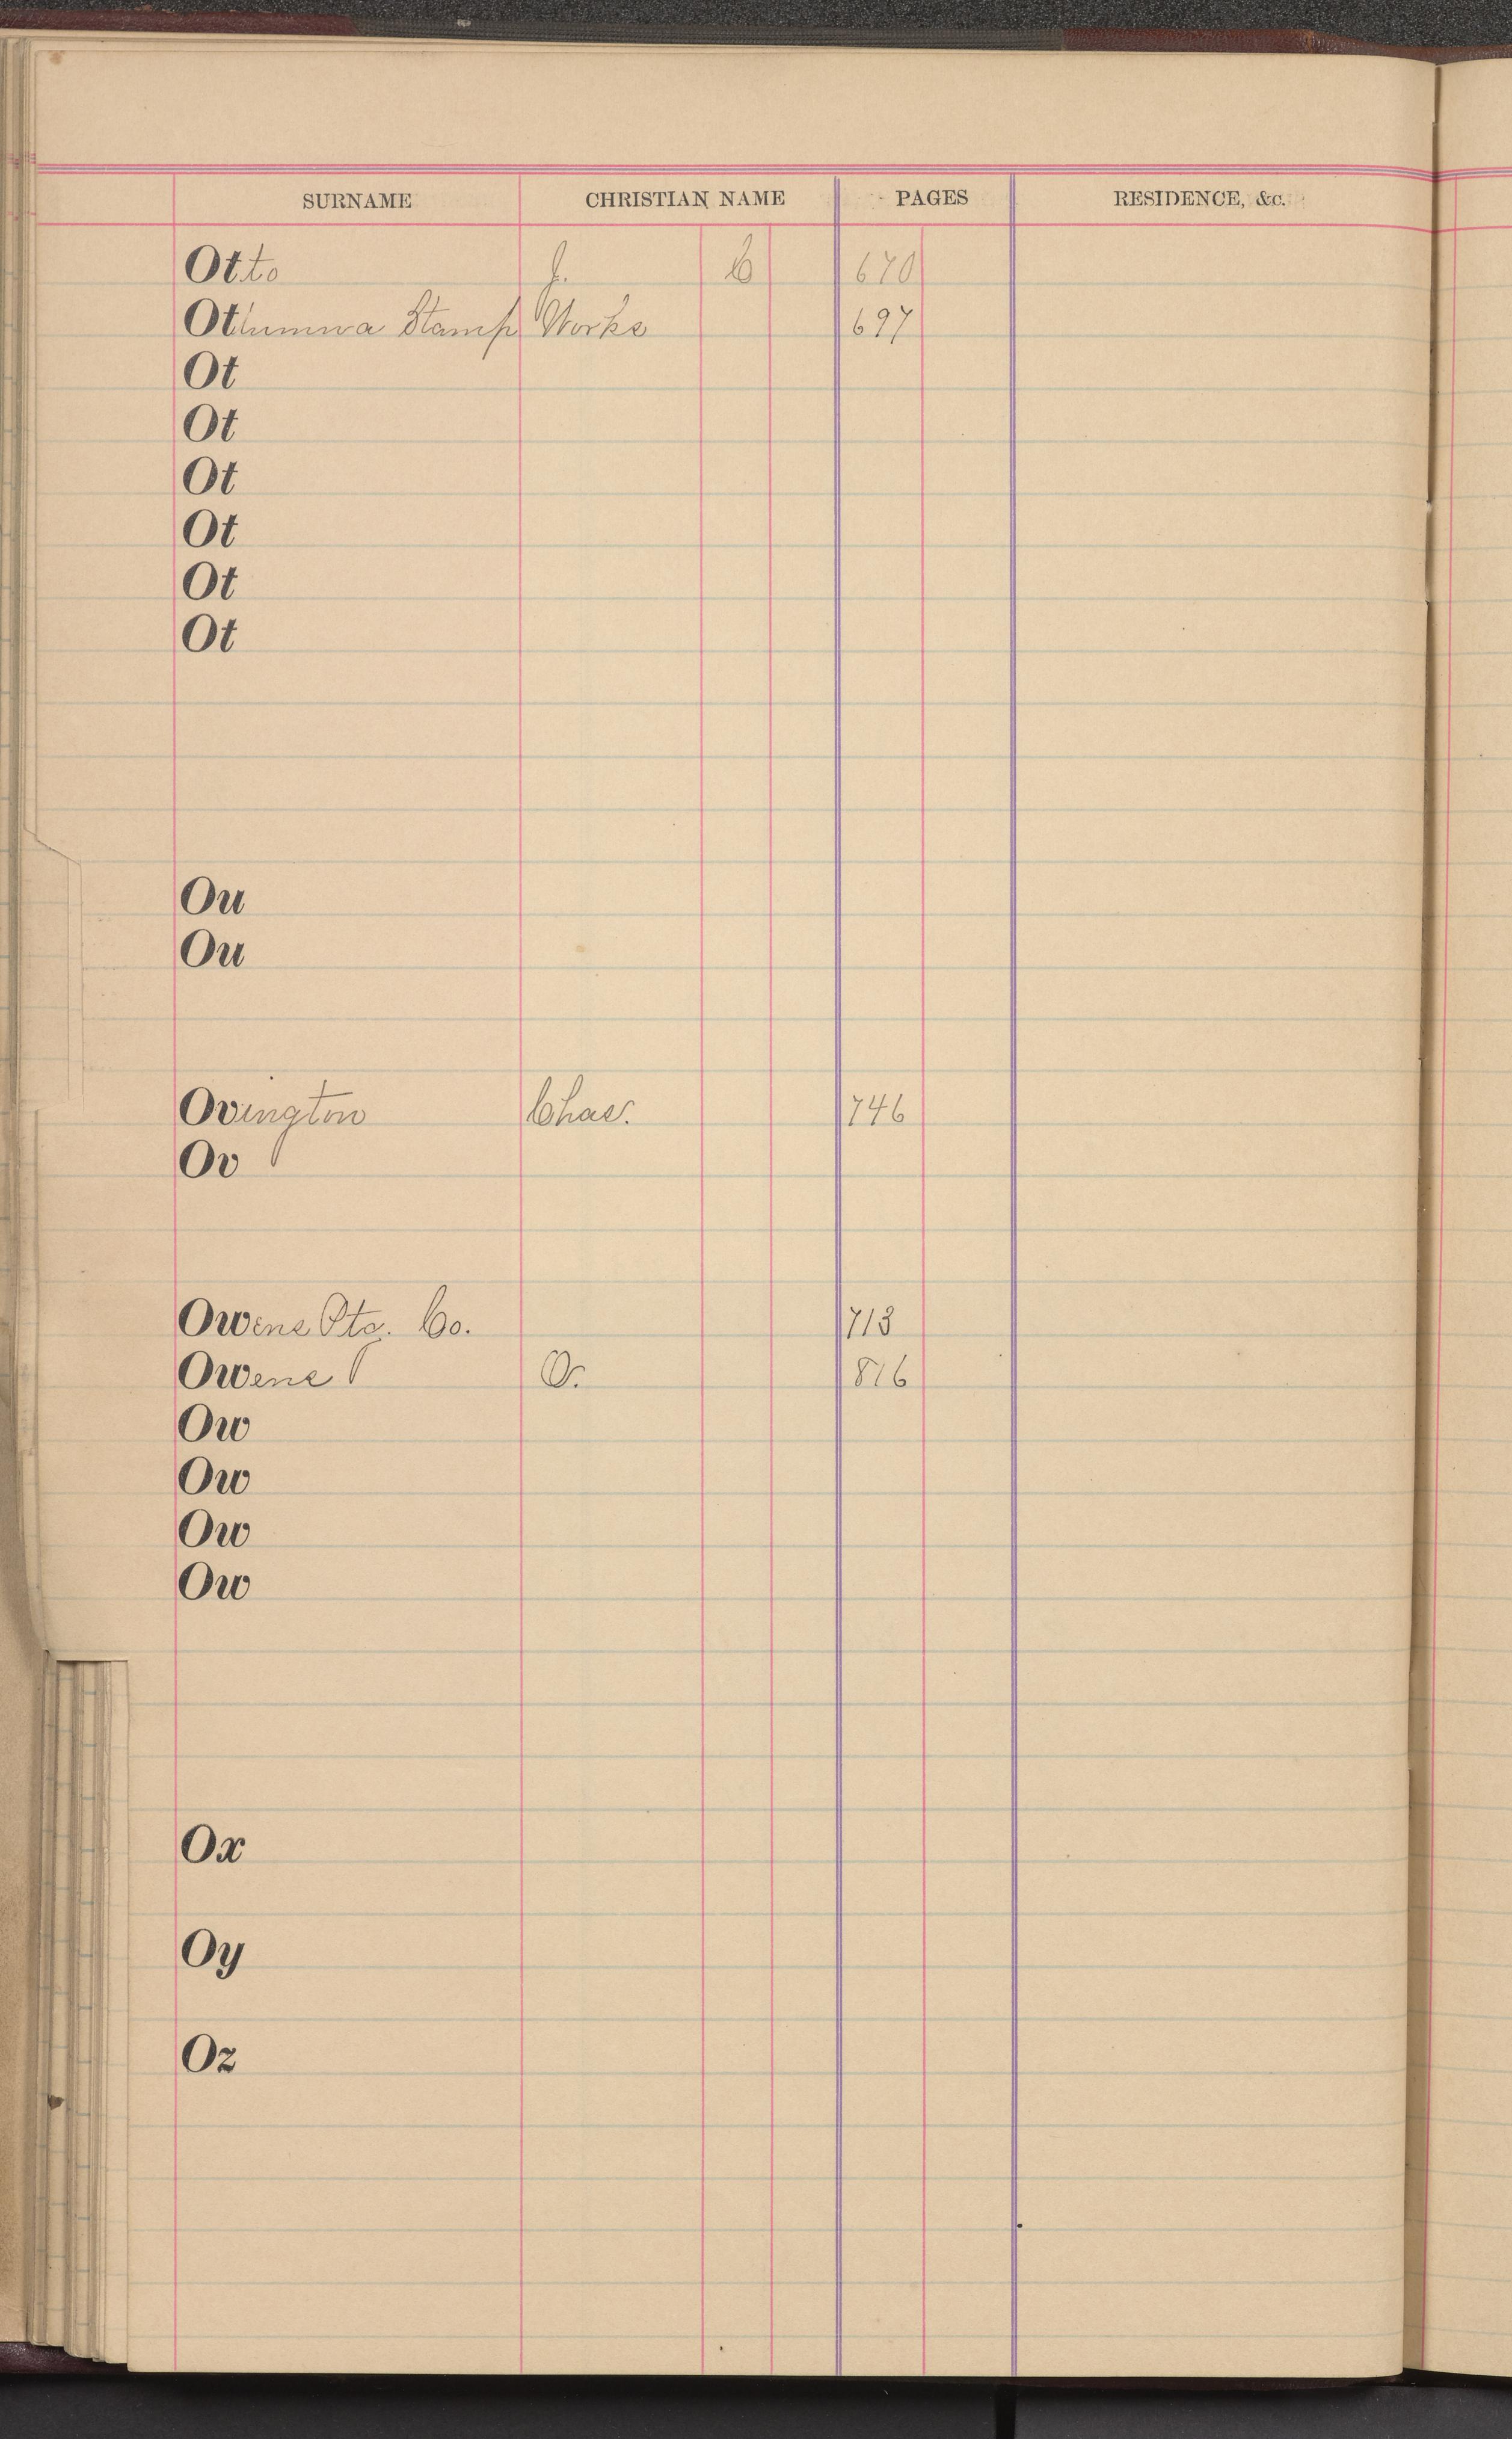 SURNAME CHRISTIAN NAME PAGES RESIDENCE, &c.
Otto J. C 670
Ottumwa Stamp Works 697
Ot
Ot
Ot
Ot
Ot
Ot
Ou
Ou
Ovington Chas. 746
Ov
Owens Ptg. Co. 713
Owens O. 816
Ow
Ow
Ow
Ow
Ox
Oy
Oz